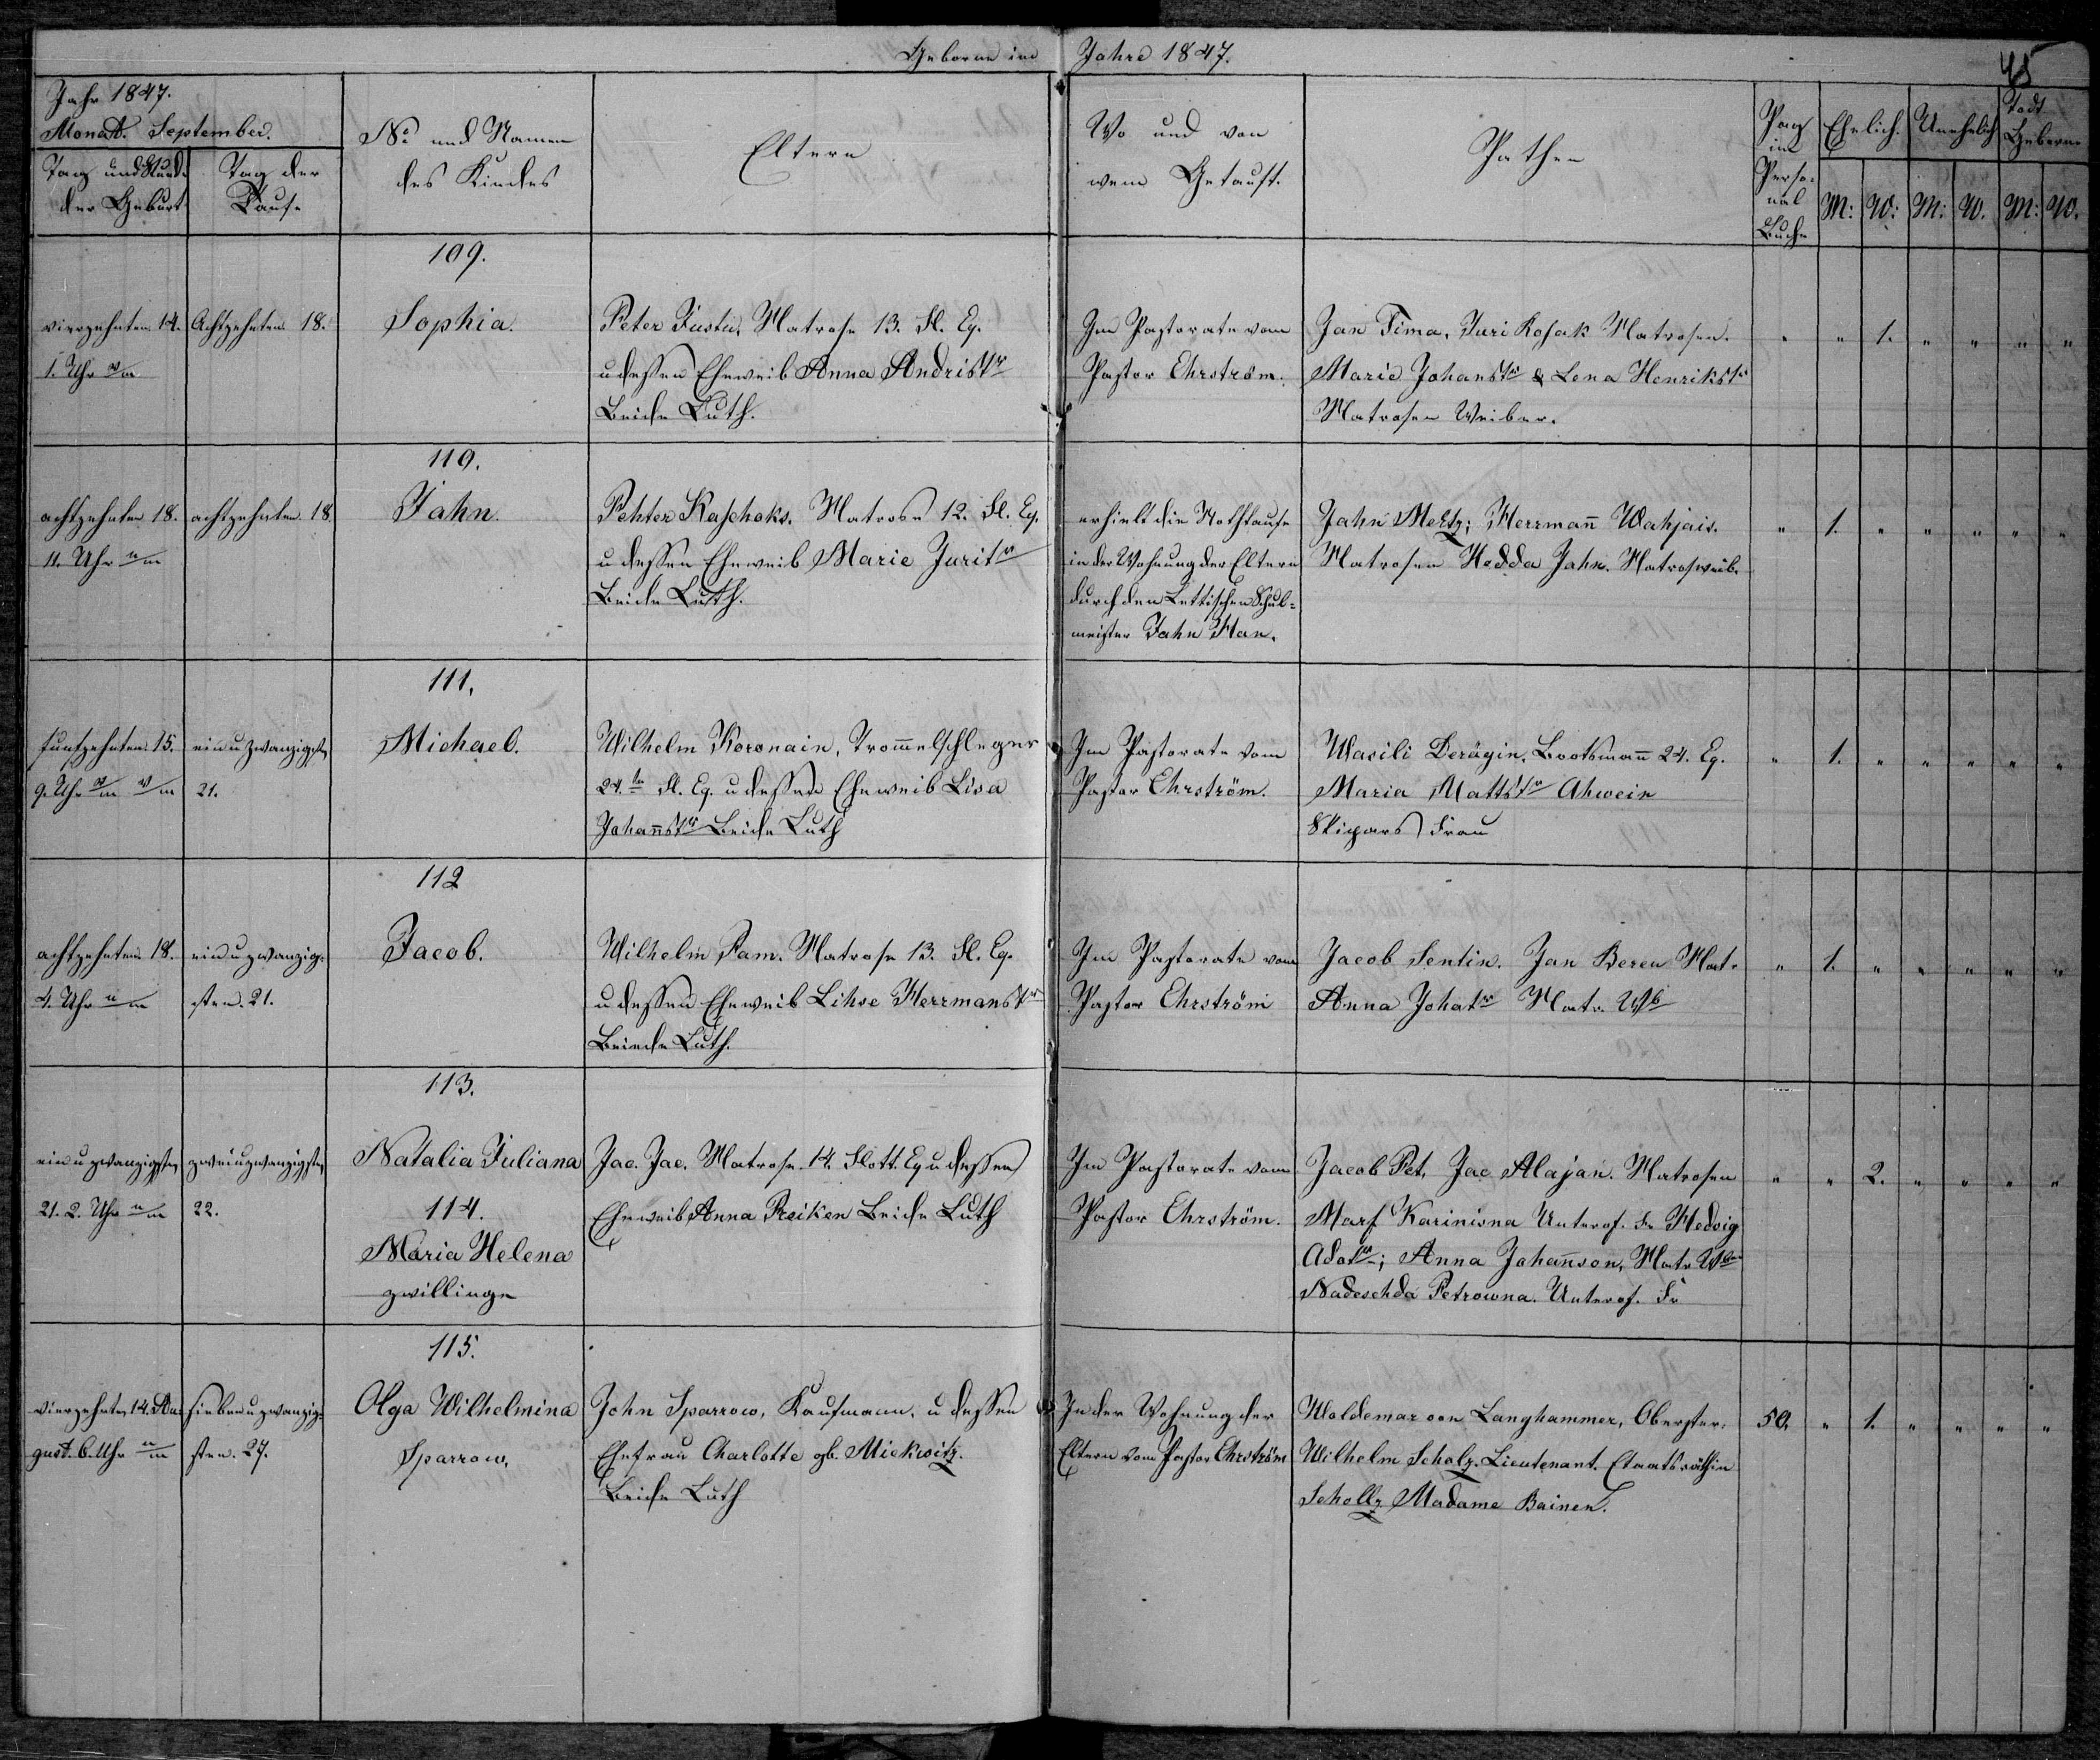 Geborne im Jahre 1847.
45
Jahr 1847.
Monat. September.
Tag und Stund. der Geburt
Tag der Taufe
No und Namen des Kindes
Eltern
Wo und von wem Getauft.
Pathen
Pag im Perso-nal Buche
Ehelich.
Unehelich
Todt Geborne
M: W: M: W. M: W.
109.
vierzehnten 14. Achtzehnten 18. Sophia.
1. Uhr
Peter Justu, Matrose 13. Fl. Eq.
u dessen Eheweib Anna Andristr
Beide Luth.
Im Pastorate vom
Pastor Ehrström.
Jan Tima, Juri Kosak Matrosen.
Marie Johanstr & Lena Henrikstr
Matrosen Weiber.
" " 1. " " " "
110.
achtzehnten 18. achtzehnten. 18 Jahn.
11. Uhr
Pehter Kaschoks. Matrose 12. Fl. Eq.
u dessen Eheweib Marie Juritr
Beide Luth.
erhielt die Nothtaufe
in der Wohnung der Eltern
durch den Lettischen Schul-
meister Jahn Man.
Jahn Mertz; Herrmann Wahjais.
Matrosen Hedda Jahn. Matrosweib.
" 1. " " " " "
111.
funfzehnten 15. ein u zwanzigsten Michael.
9. Uhr
21.
Wilhelm Koronain, Trommelschleger
24.te Fl. Eq. u dessen Eheweib Lisa
Johannstr Beide Luth
Im Pastorate vom
Pastor Ehrström.
Wasili Derägin. Bootsmann 24. Eq.
Maria Mattstr Ahwein
Skipars Frau
" 1. " " " " "
112
achtzehnten 18. ein u zwanzig- Jacob.
4. Uhr
sten. 21.
Wilhelm Pam. Matrose 13. Fl. Eq.
u dessen Eheweib Lihse Herrmanstr
Beiede Luth.
Im Pastorate vom
Pastor Ehrström
Jacob Sentin. Jan Beren Mat.
Anna Johatr Matr. Wb
" 1. " " " " "
113.
ein u zwanzigsten zwei u zwanzigsten Natalia Juliana
21. 2. Uhr
22.
114.
Maria Helena
zwillinge
Jac. Jac. Matrose. 14. Flott. Eq u dessen
Eheweib Anna Preiken Beide Luth
Im Pastorate vom
Pastor Ehrström.
Jacob Pet, Jac Alajan. Matrosen
Marf Karinisna Unterof. Fr Hedvig
Adatr; Anna Johannson, Matr Wbr
Nadeschda Petrowna. Unterof. Fr
" " 2. " " " "
115.
vierzehnten 14. Au-
gust. 6. Uhr
sieben u zwanzig-
sten. 27.
Olga Wilhelmina
Sparrow.
John Sparrow, Kaufmann, u dessen
Ehefrau Charlotte gb. Mickwitz.
Beide Luth
In der Wohnung der
Eltern vom Pastor Ehrström
Woldemar von Langhammer, Oberster.
Wilhelm Scholz. Lieutenant. Etaatsräthin
Schollz Madame Bainen.
50. " 1. " " " "